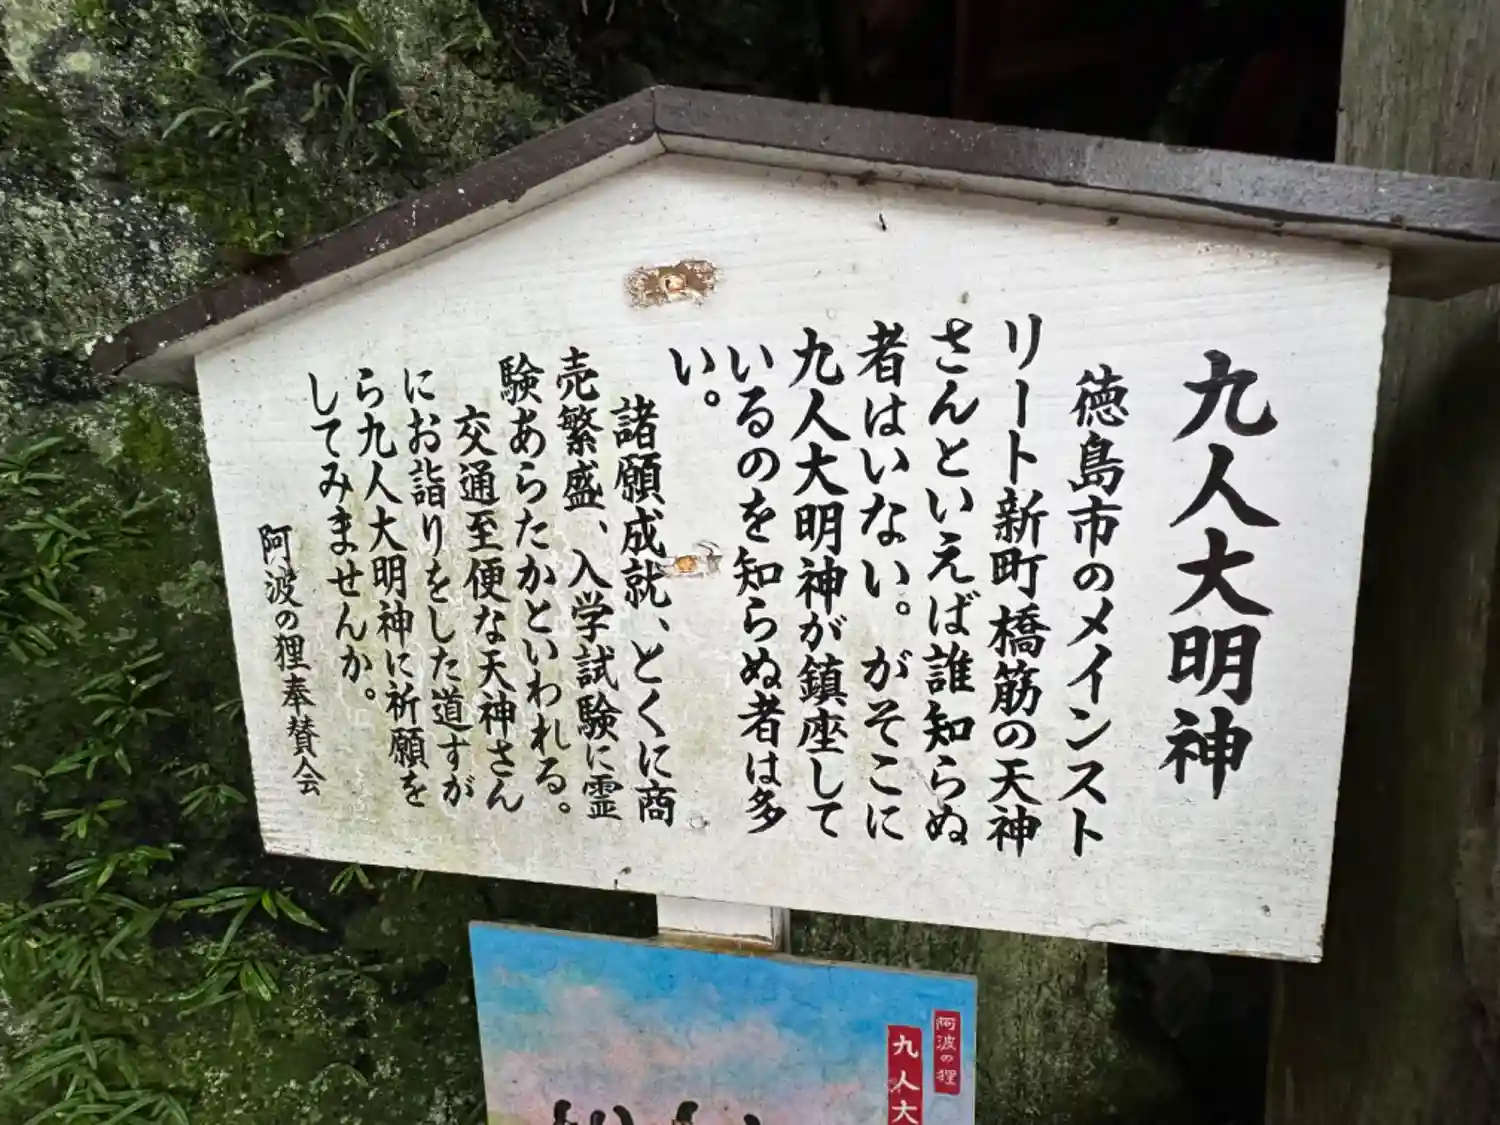 九人大明神
徳島市のメインスト
リート新町橋筋の天神
さんといえば誰知らぬ
者はいない。がそこに
九人大明神が鎮座して
いるのを知らぬ者は多
い。
諸願成就、とくに商
売繁盛、入学試験に霊
験あらたかといわれる。
交通至便な天神さん
にお詣りをした道すが
ら九人大明神に祈願を
してみませんか。
阿波の狸奉賛会
阿波の狸
九人大